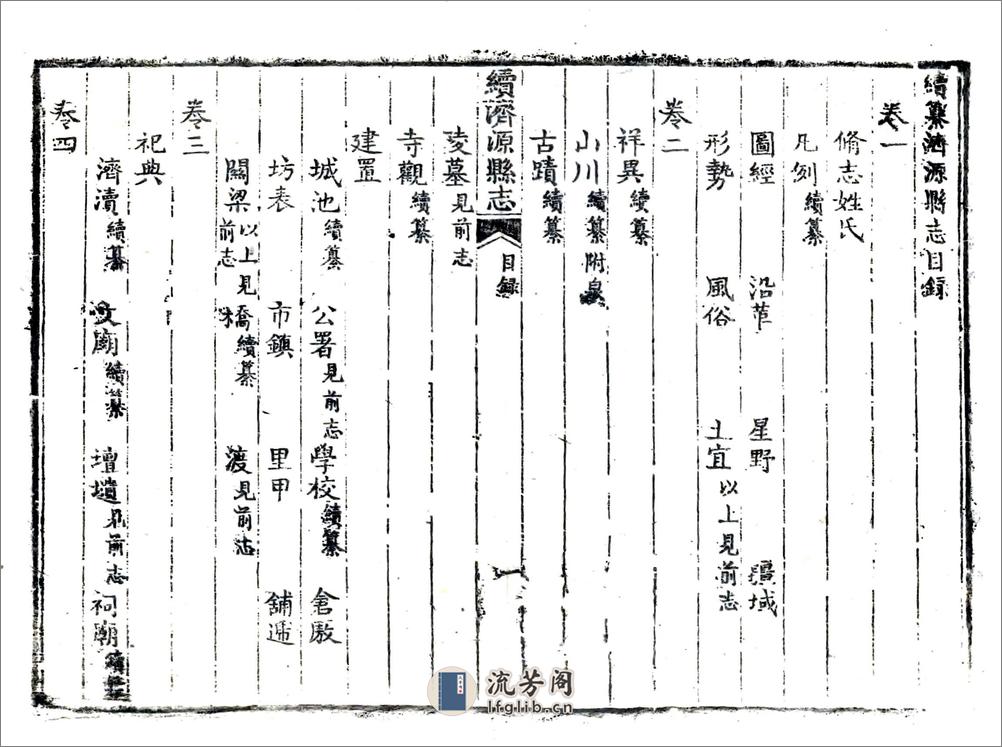 續纂濟源縣志目録
卷一
修志姓氏
凡例續纂
圖經 沿革 星野 疆域
形勢 風俗 土宜以上見前志
卷二
祥異續纂
山川續纂附泉
古蹟續纂
續濟源縣志 目録 一
陵墓見前志
寺觀續纂
建置
城池續纂 公署見前志 學校續纂 倉廒
坊表 市鎮 里甲 舖遞
關梁以上見前志 橋續纂 渡見前志
卷三
祀典
濟瀆續纂 文廟續纂 壇壝見前志 祠廟續纂
卷四
流芳阁
lfglib.cn